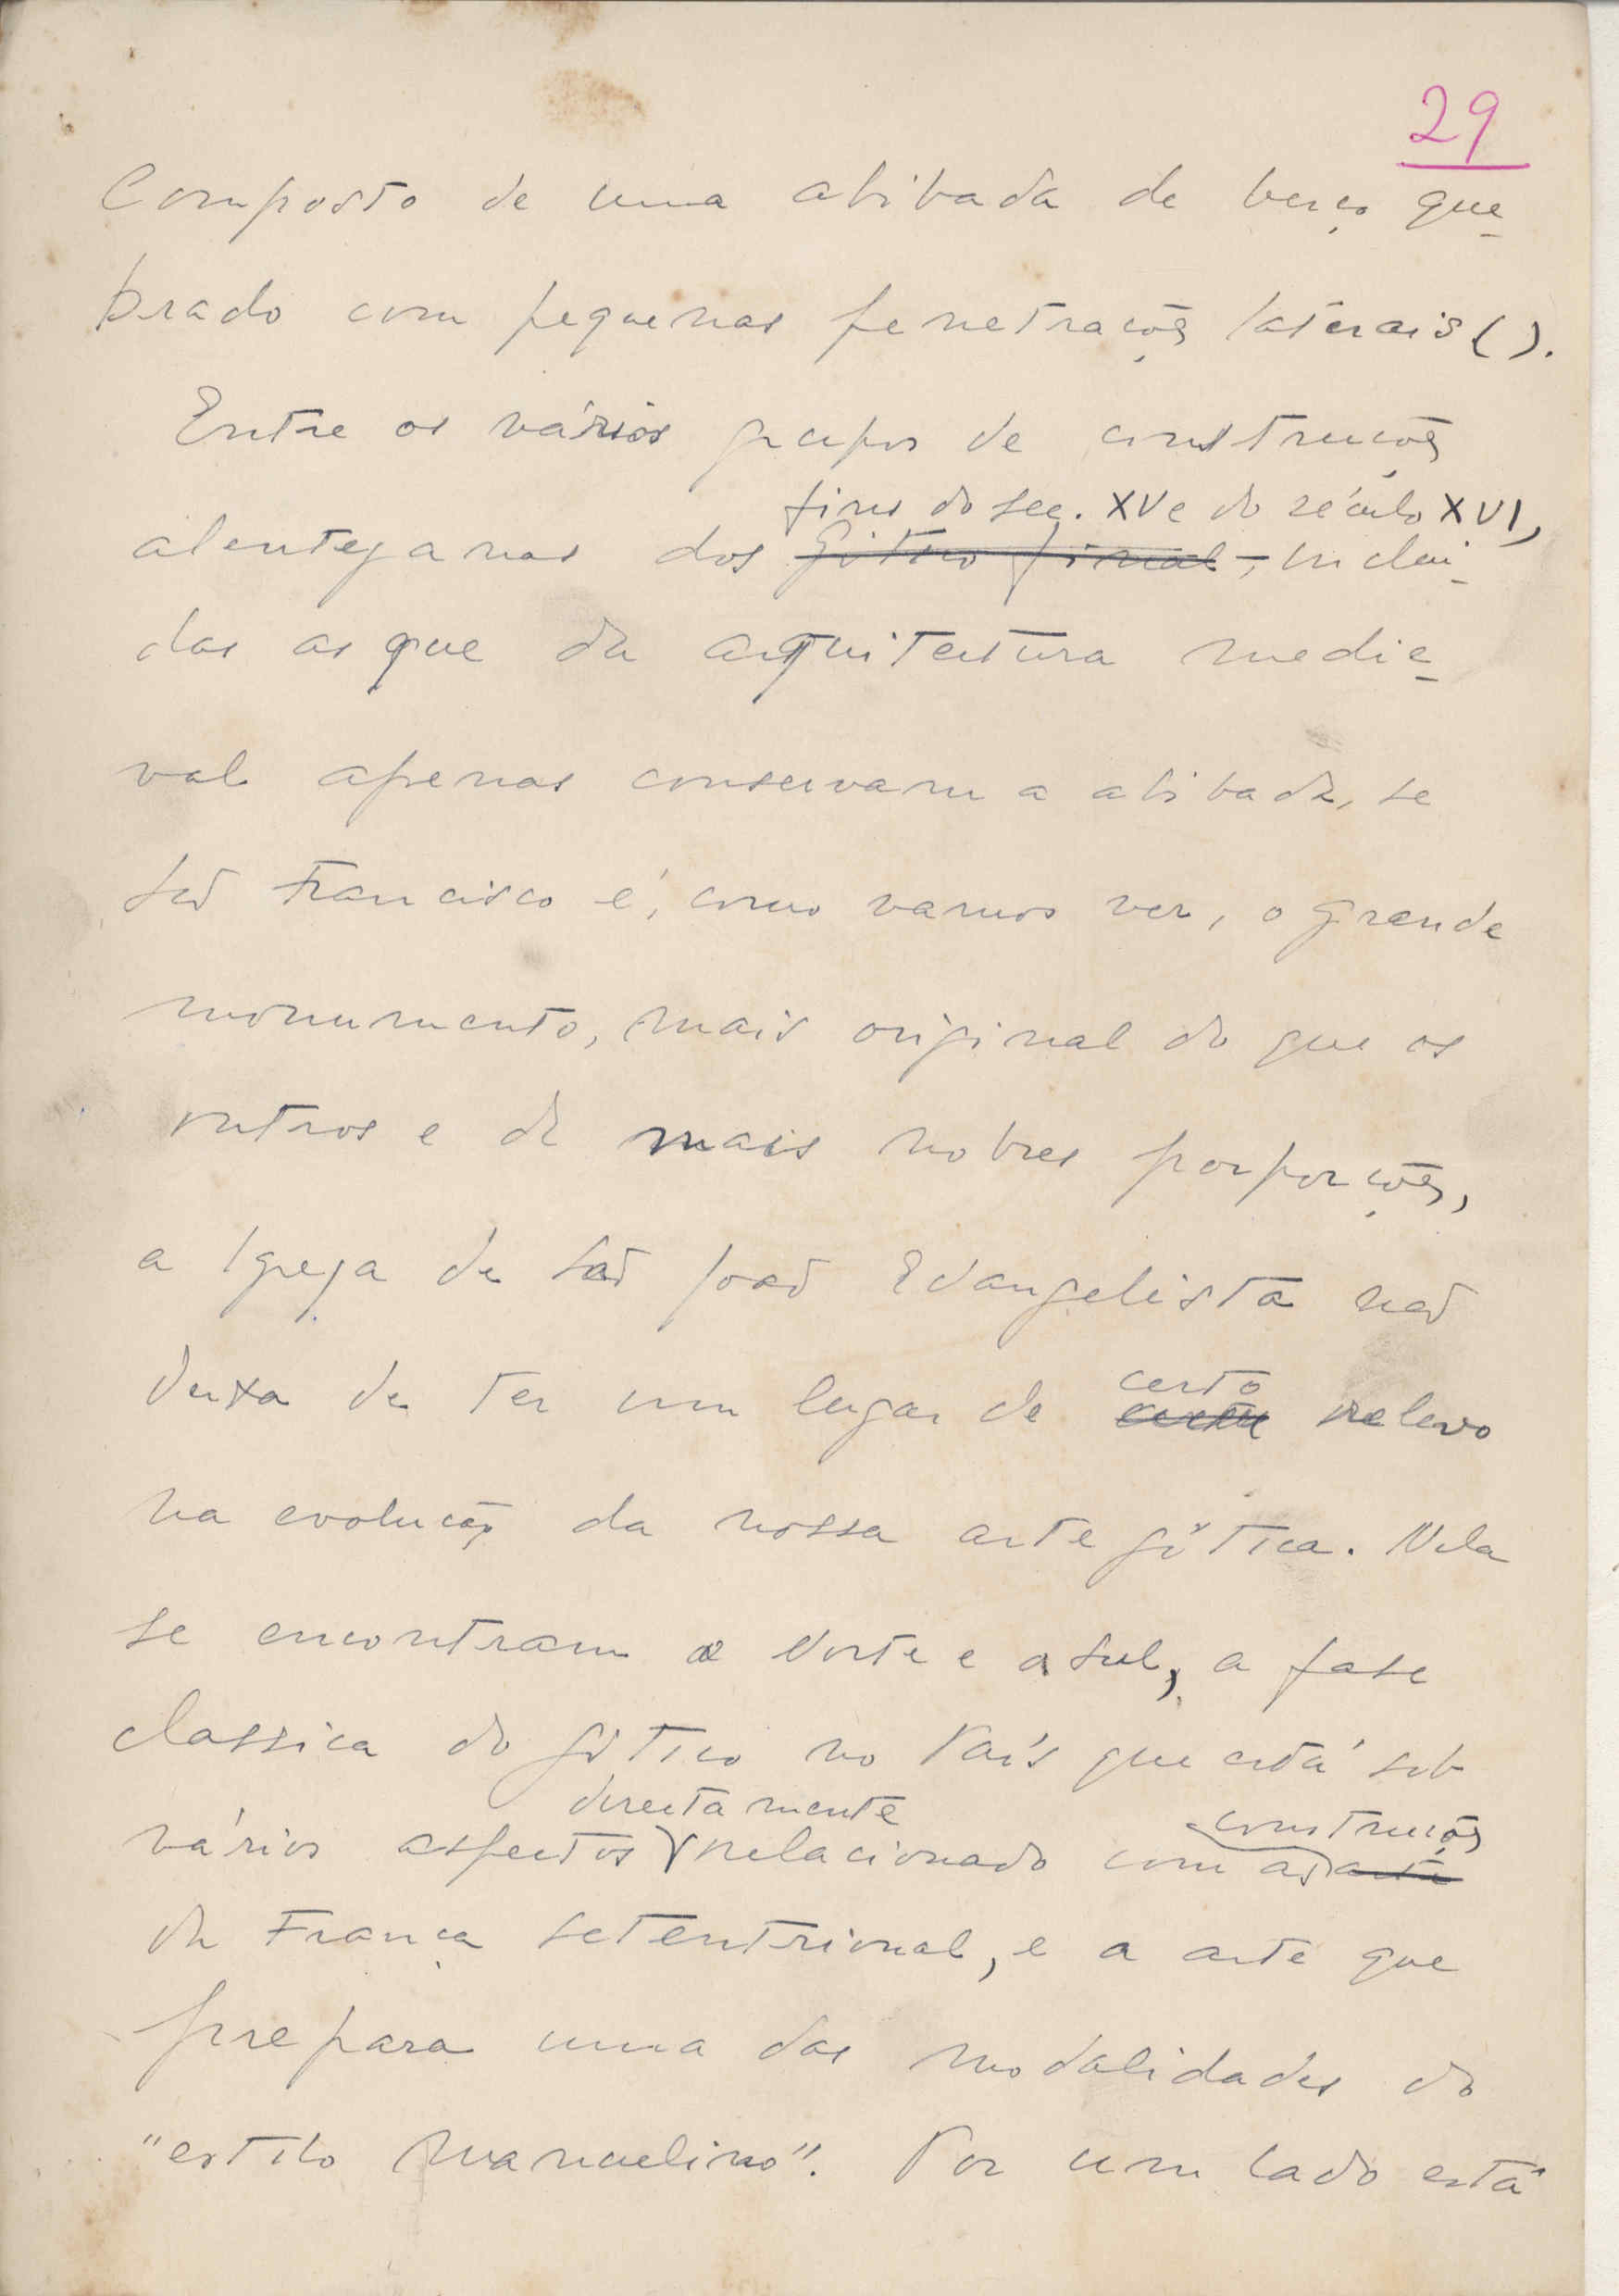 29
Composto de uma abibada de berço que-
brado com pequenas penetrações laterais ( ).
Entre os vários grupos de construções
fins do sec. XV e do século XVI,
alentejanas dos gótico final, inclui-
das as que da arquitectura medie-
val apenas conservam a abibada, se
São Francisco é, como vamos ver, o grande
monumento, mais original do que os
outros e de mais nobres porporções,
a Igreja de São João Evangelista não
certo
deixa de ter um lugar de relevo
na evolução da nossa arte gótica. Nela
se encontram o Norte e o Sul, a fase
classica do gótico no País que está sob
directamente construções
vários aspectos relacionado com as arte
da França setentrional, e a arte que
prepara uma das modalidades do
"estilo Manuelino". Por um lado está